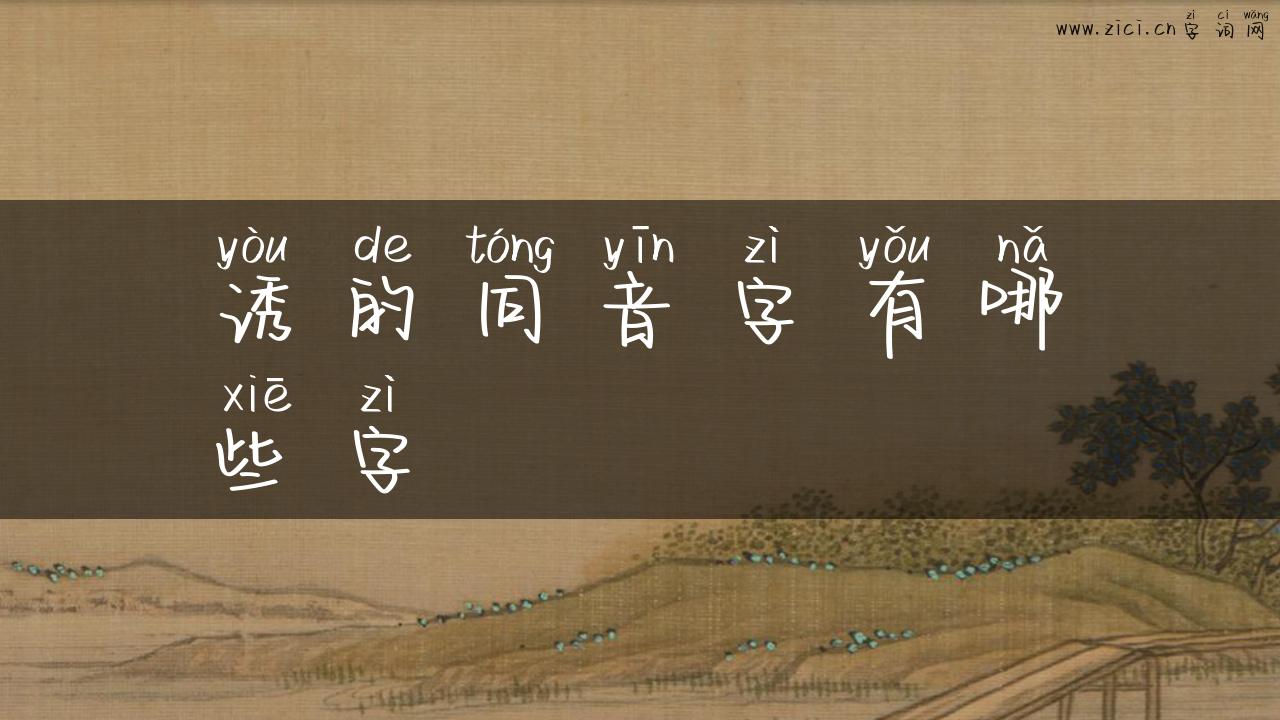 zì cí wǎng
www.zici.cn 字词网
yòu de tóng yīn zì yǒu nǎ
诱的同音字有哪
xiē zì
些字